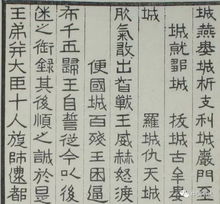 城燕婁城析支利城巖門至
城　就鄒城　拔城古牟婁
城　　　羅城仇天城
氣敢出戰王威赫怒渡
便國城百殘王困逼
布千匹歸王自誓從今以後
迷之銜錄其後順之誠於是
王弟幷大臣十人旋師還都